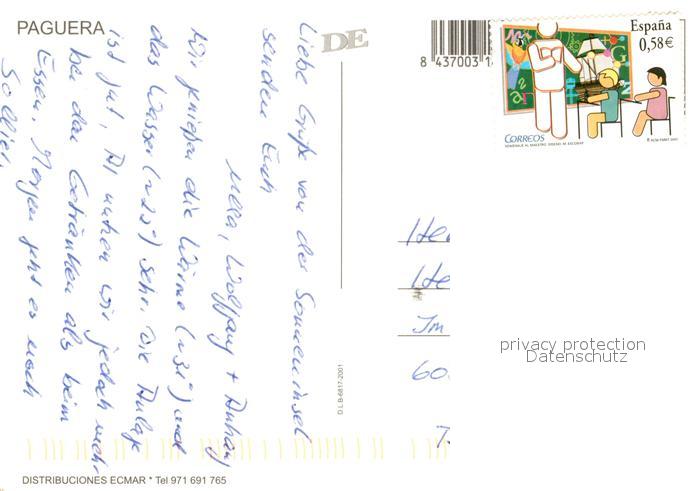 PAGUERA
DE
Liebe Grüße von der Sonneninsel
senden Euch
Wolfgang +
Wir genießen die Wärme (~32°) und
das Wasser (~22°) sehr. Die Anlage
ist gut, AI nutzen wir jedoch mehr
bei den Getränken als beim
Essen. Morgen geht es nach
Soller.
8 437003 1
España
0,58€
CORREOS
HOMENAJE AL MAESTRO. DISEÑO: M. ESCOBAR
He
He
Im
60
privacy protection
Datenschutz
D.L.B-6817-2001
DISTRIBUCIONES ECMAR * Tel 971 691 765